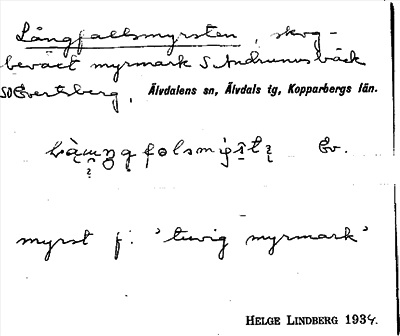 Långfallsmyrsten, skog-
beväxt myrmark S Andrunusbäck
SO Evertsberg, Älvdalens sn, Älvdals tg, Kopparbergs län.
Ev.
myrst f. 'tuvig myrmark'
HELGE LINDBERG 1934.